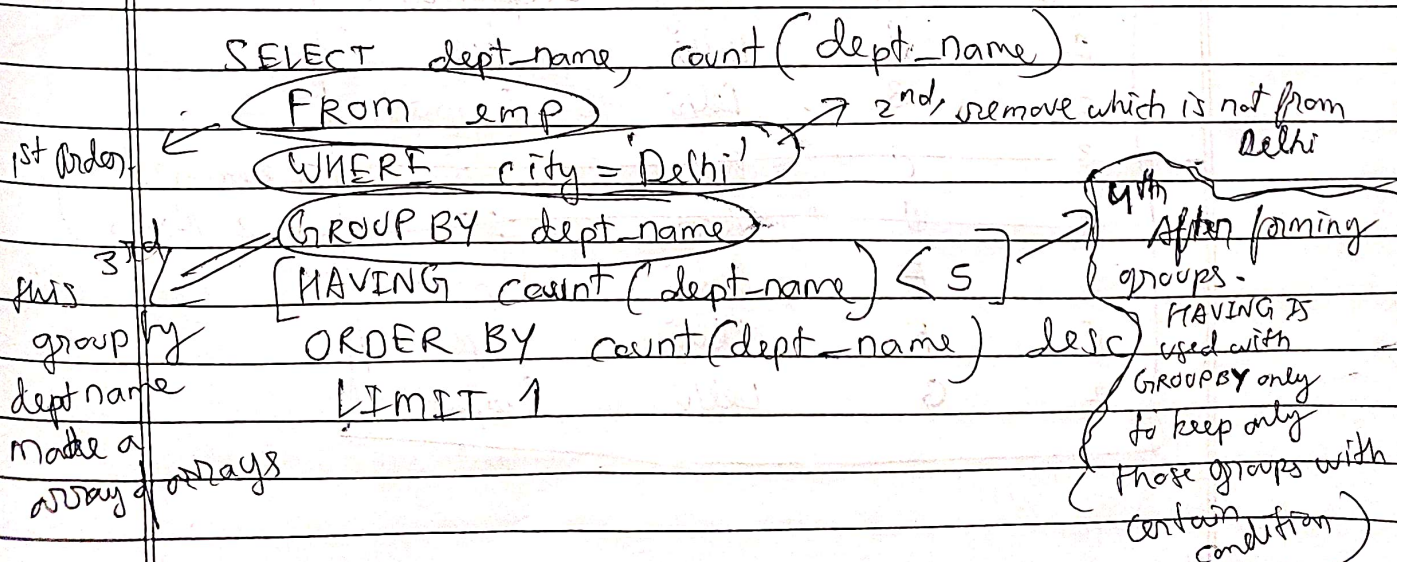 SELECT dept_name, count(dept_name)
FROM emp
WHERE city = 'Delhi'
GROUP BY dept_name
[HAVING count(dept_name) < 5]
ORDER BY count(dept_name) desc
LIMIT 1
1st Order
2nd, remove which is not from
Delhi
3rd
this
group by
dept name
make a
array of arrays
4th
After forming
groups.
HAVING IS
used with
GROUPBY only
to keep only
those groups with
certain
condition)